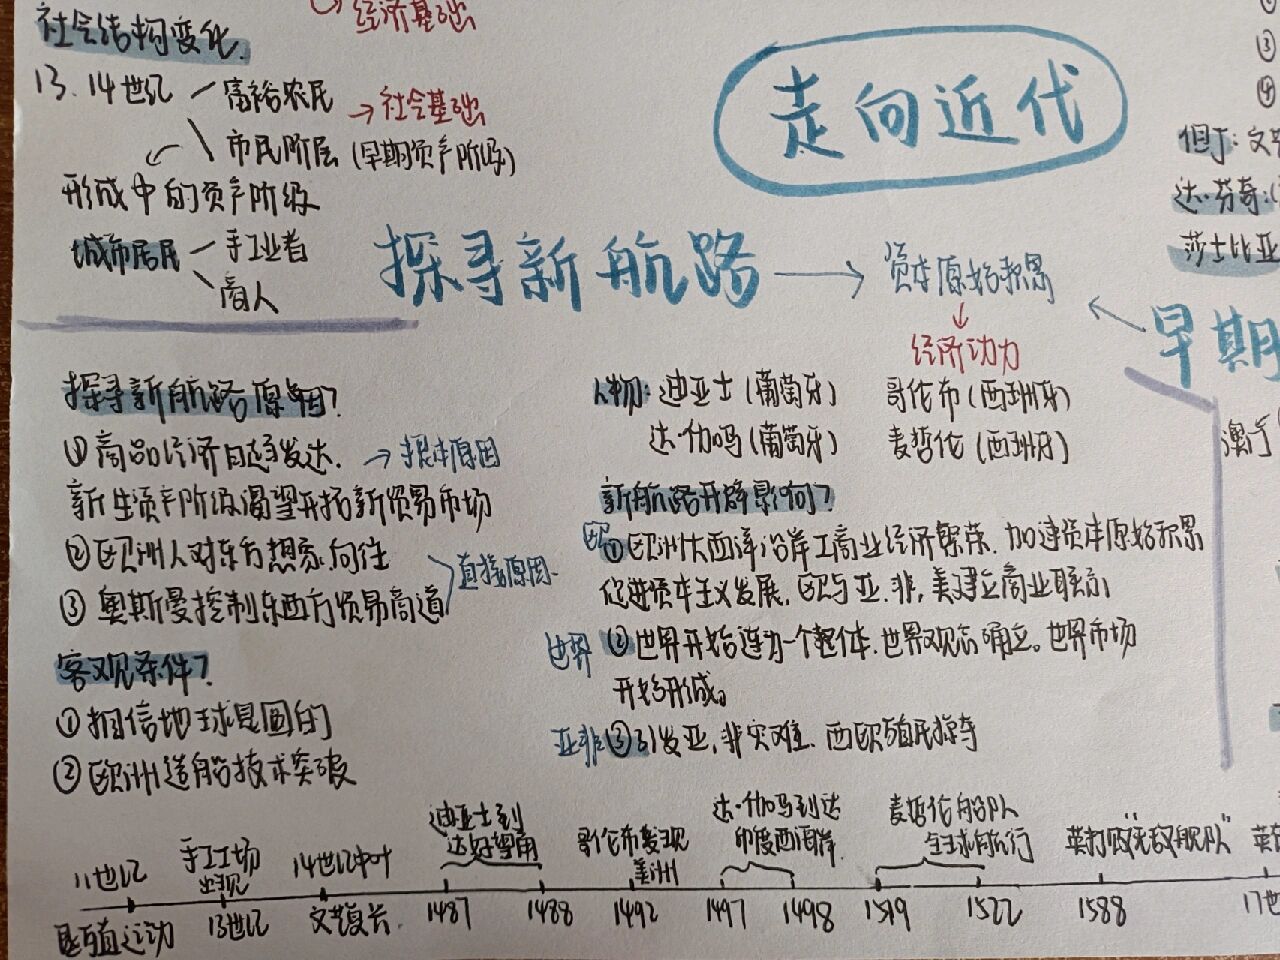 社会结构变化.
→ 经济基础
13、14世纪
富裕农民
→社会基础
市民阶层 (早期资产阶级)
形成中的资产阶级
城市居民
手工业者
商人
走向近代
③
④
但丁: 文艺
达·芬奇:
莎士比亚
探寻新航路
资本原始积累
经济动力
早期
探寻新航路原因?
①商品经济日趋发达. →根本原因
新生资产阶级渴望开拓新贸易市场
②欧洲人对东方想象、向往
直接原因.
③奥斯曼控制东西方贸易商道
客观条件?
①相信地球是圆的
②欧洲造船技术突破
人物: 迪亚士 (葡萄牙) 哥伦布 (西班牙)
达·伽玛 (葡萄牙) 麦哲伦 (西班牙)
新航路开辟影响?
欧 ①欧洲大西洋沿岸工商业经济繁荣. 加速资本原始积累
促进资本主义发展. 欧与亚. 非, 美建立商业联系
世界 ②世界开始连为一个整体. 世界观念确立。世界市场
开始形成。
亚非 ③引发亚, 非灾难. 西欧殖民掠夺
11世纪
垦殖运动
手工工场
出现
13世纪
14世纪中叶
文艺复兴.
迪亚士到
达好望角
1487 1488
哥伦布发现
美洲
1492
达·伽马到达
印度西海岸.
1497 1498
麦哲伦船队
全球航行
1519 1522
英打败“无敌舰队”
1588
英
17世